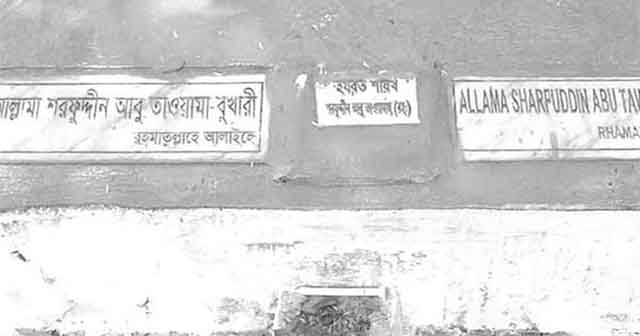 আল্লামা শরফুদ্দীন আবু তাওয়ামা-বুখারী
রহমাতুল্লাহে আলাইহে
হযরত শায়খ
ALLAMA SHARFUDDIN ABU TAW
RHAMA